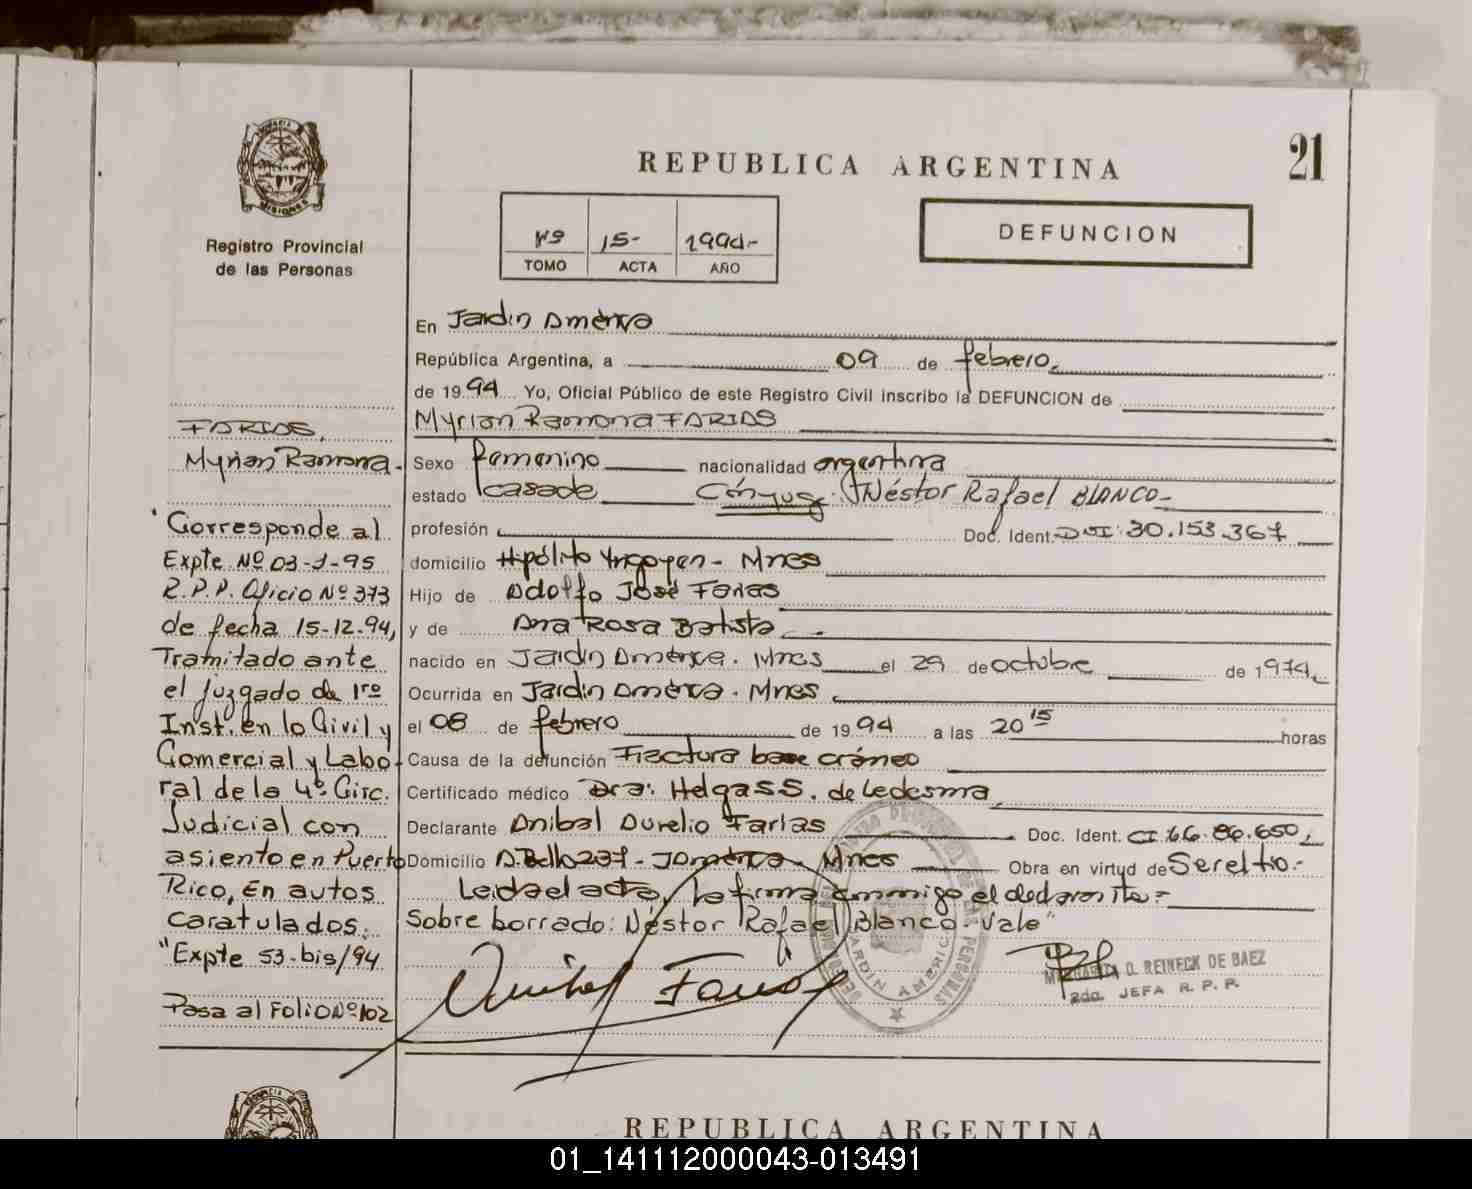 21
REPUBLICA ARGENTINA
DEFUNCION
Nº 15- 1994-
TOMO ACTA AÑO
MISIONES
Registro Provincial
de las Personas
FARIAS,
Myrian Ramona.-
"Corresponde al
Expte Nº 03-J-95
R.P.P. Oficio Nº 373
de fecha 15-12-94,
Tramitado ante
el Juzgado de 1ro
Inst. en lo Civil y
Comercial y Labo-
ral de la 4º Circ.
Judicial con
asiento en Puerto
Rico, En autos
caratulados:
"Expte 53-bis/94
Pasa al Folio Nº 102
En Jardin América
República Argentina, a 09 de febrero.
de 1994 Yo, Oficial Público de este Registro Civil inscribo la DEFUNCION de
Myrian Ramona FARIAS
Sexo femenino nacionalidad argentina
estado casada Cónyuge: Néstor Rafael BLANCO-
profesión Doc. Ident. DNI: 30.153.367
domicilio Hipólito Yrigoyen- Mnes
Hijo de Adolfo José Farias
y de Ana Rosa Batista
nacido en Jardin América. Mnes el 29 de octubre de 1974
Ocurrida en Jardin América. Mnes
el 08 de febrero de 1994 a las 20 15 horas
Causa de la defunción Fractura base cráneo
Certificado médico Dra: Helga S.S. de Ledesma
Declarante Anibal Aurelio Farias Doc. Ident. CI 66.86.650
Domicilio A. Bello 237- J. América- Mnes Obra en virtud de Ser el tio.-
Leida el acta, la firma conmigo el declarante=
Sobre borrado: Néstor Rafael Blanco- Vale"
Anibal Farias
JARDIN AMERICA
MARGARITA O. REINECK DE BAEZ
2da. JEFA R. P. P.
REPUBLICA ARGENTINA
01_141112000043-013491